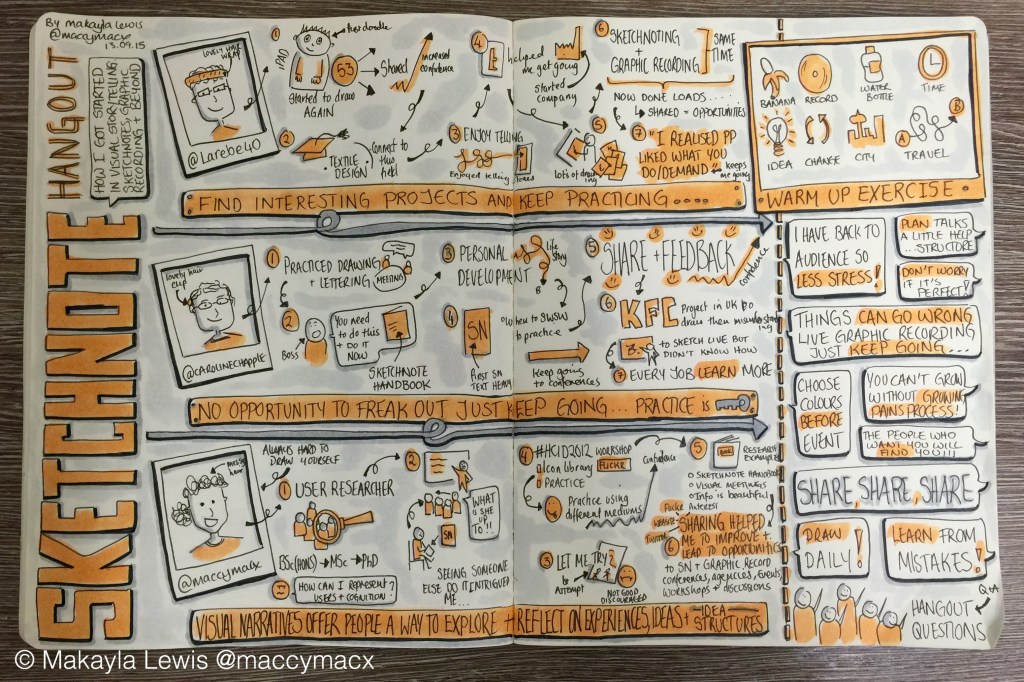 By Makayla Lewis
@maccymacx
13.09.15
SKETCHNOTE
HANGOUT
HOW I GOT STARTED
IN VISUAL STORYTELLING
SKETCHNOTING, GRAPHIC
RECORDING + BEYOND
LOVELY HAIR
WRAP
@Larebe40
1
PAD
her doodle
53
Started to draw
AGAIN
Shared
increased
confidence
2
TEXTILE
DESIGN
Connect to
this
field
3 ENJOY TELLING
Enjoyed telling
4
helped me
get going
Started
company
5
Lots of drawing
6 SKETCHNOTING
+
GRAPHIC RECORDING
SAME
TIME
NOW DONE LOADS.....
SHARED = OPPORTUNITIES
7 "I REALISED PP
LIKED WHAT YOU
DO/DEMAND"
keeps
me going
FIND INTERESTING PROJECTS AND KEEP PRACTICING....
lovely hair
clip
@CAROLINECHAPPLE
1 PRACTICED DRAWING
+ LETTERING
MEETING
2
BOSS
You need
to do this
+ DO IT
NOW
SKETCHNOTE
HANDBOOK
3 PERSONAL
DEVELOPMENT
life
story
B
4
SN
FIRST SN
TEXT HEAVY
to SXSW
to practice
Keep going
to conferences
5 SHARE + FEEDBACK
confidence
6 KFC
Project in UK to
draw their
to SKETCH LIVE BUT
DIDN'T KNOW HOW
7 EVERY JOB LEARN MORE
NO OPPORTUNITY TO FREAK OUT JUST KEEP GOING... PRACTICE is
messy hair
@maccymacx
ALWAYS HARD TO
DRAW YOURSELF
1 USER RESEARCHER
BSc(HONS) → MSc → PhD
HOW CAN I REPRESENT
USERS + COGNITION?
2
WHAT
is SHE
UP
TO?!!
SN
SEEING SOMEONE
ELSE DO IT INTRIGUED
ME...
3 LET ME TRY?
Attempt
NOT GOOD
DISCOURAGED
4 #HCID2012 WORKSHOP
Icon library FLICKR
PRACTICE
Practice using
different mediums
Confidence
5
RESEARCH
EXAMPLES
SKETCHNOTE HANDBOOK
VISUAL MEETINGS
Info is beautiful
Flickr
WEBSITE
Twitter
SHARING HELPED
6 ME TO IMPROVE +
LEAD TO OPPORTUNITIES
TO SN + GRAPHIC RECORD
conferences, agencies, events,
workshops + discussions
VISUAL NARRATIVES OFFER PEOPLE A WAY TO EXPLORE + REFLECT ON EXPERIENCES, IDEAS + IDEA STRUCTURES
BANANA
RECORD
WATER
BOTTLE
TIME
IDEA
CHANGE
CITY
A
B
TRAVEL
WARM UP EXERCISE
I HAVE BACK TO
AUDIENCE SO
LESS STRESS!
PLAN TALKS
A LITTLE HELP
...STRUCTURE
DON'T WORRY
IF IT'S
PERFECT!
THINGS CAN GO WRONG
LIVE GRAPHIC RECORDING
JUST KEEP GOING...
CHOOSE
COLOURS
BEFORE
EVENT
YOU CAN'T GROW
WITHOUT GROWING
PAINS PROCESS!
THE PEOPLE WHO
WANT YOU WILL
FIND YOU!!!
SHARE, SHARE, SHARE
DRAW
DAILY!
LEARN FROM
MISTAKES!
HANGOUT Q+A
QUESTIONS
© Makayla Lewis @maccymacx